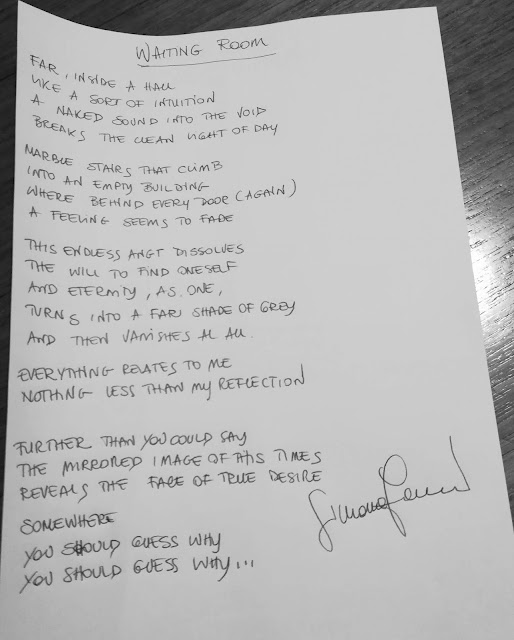 WAITING ROOM
FAR, INSIDE A HALL
LIKE A SORT OF INTUITION
A NAKED SOUND INTO THE VOID
BREAKS THE CLEAN LIGHT OF DAY
MARBLE STAIRS THAT CLIMB
INTO AN EMPTY BUILDING
WHERE BEHIND EVERY DOOR (AGAIN)
A FEELING SEEMS TO FADE
THIS ENDLESS ANGT DISSOLVES
THE WILL TO FIND ONESELF
AND ETERNITY, AS ONE,
TURNS INTO A FAR SHADE OF GREY
AND THEN VANISHES AL ALL.
EVERYTHING RELATES TO ME
NOTHING LESS THAN MY REFLECTION
FURTHER THAN YOU COULD SAY
THE MIRRORED IMAGE OF THIS TIMES
REVEALS THE FACE OF TRUE DESIRE
SOMEWHERE
YOU SHOULD GUESS WHY
YOU SHOULD GUESS WHY...